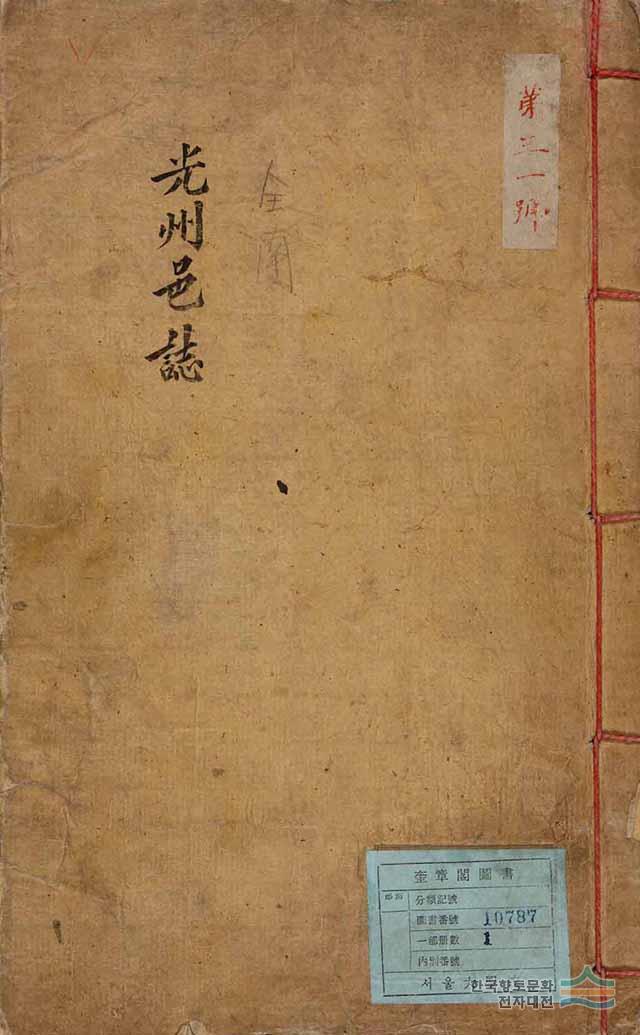 第三一號
全南
光州邑誌
奎章閣圖書
分類記號
圖書番號 10787
一部册數 1
內別番號
서울大
한국향토문화
전자대전